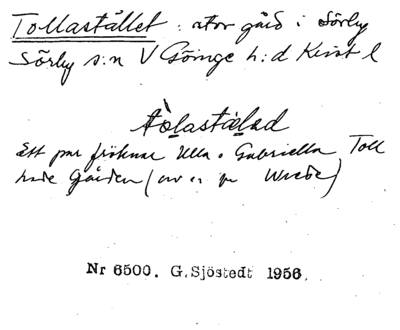 Tollastället : stor gård i Sörby
Sörby s:n V Göinge h:d Krist l
tòlastælad
Ett par fröknar Ulla o Gabriella Toll
hade Gården (
Nr 6500. G. Sjöstedt 1956.